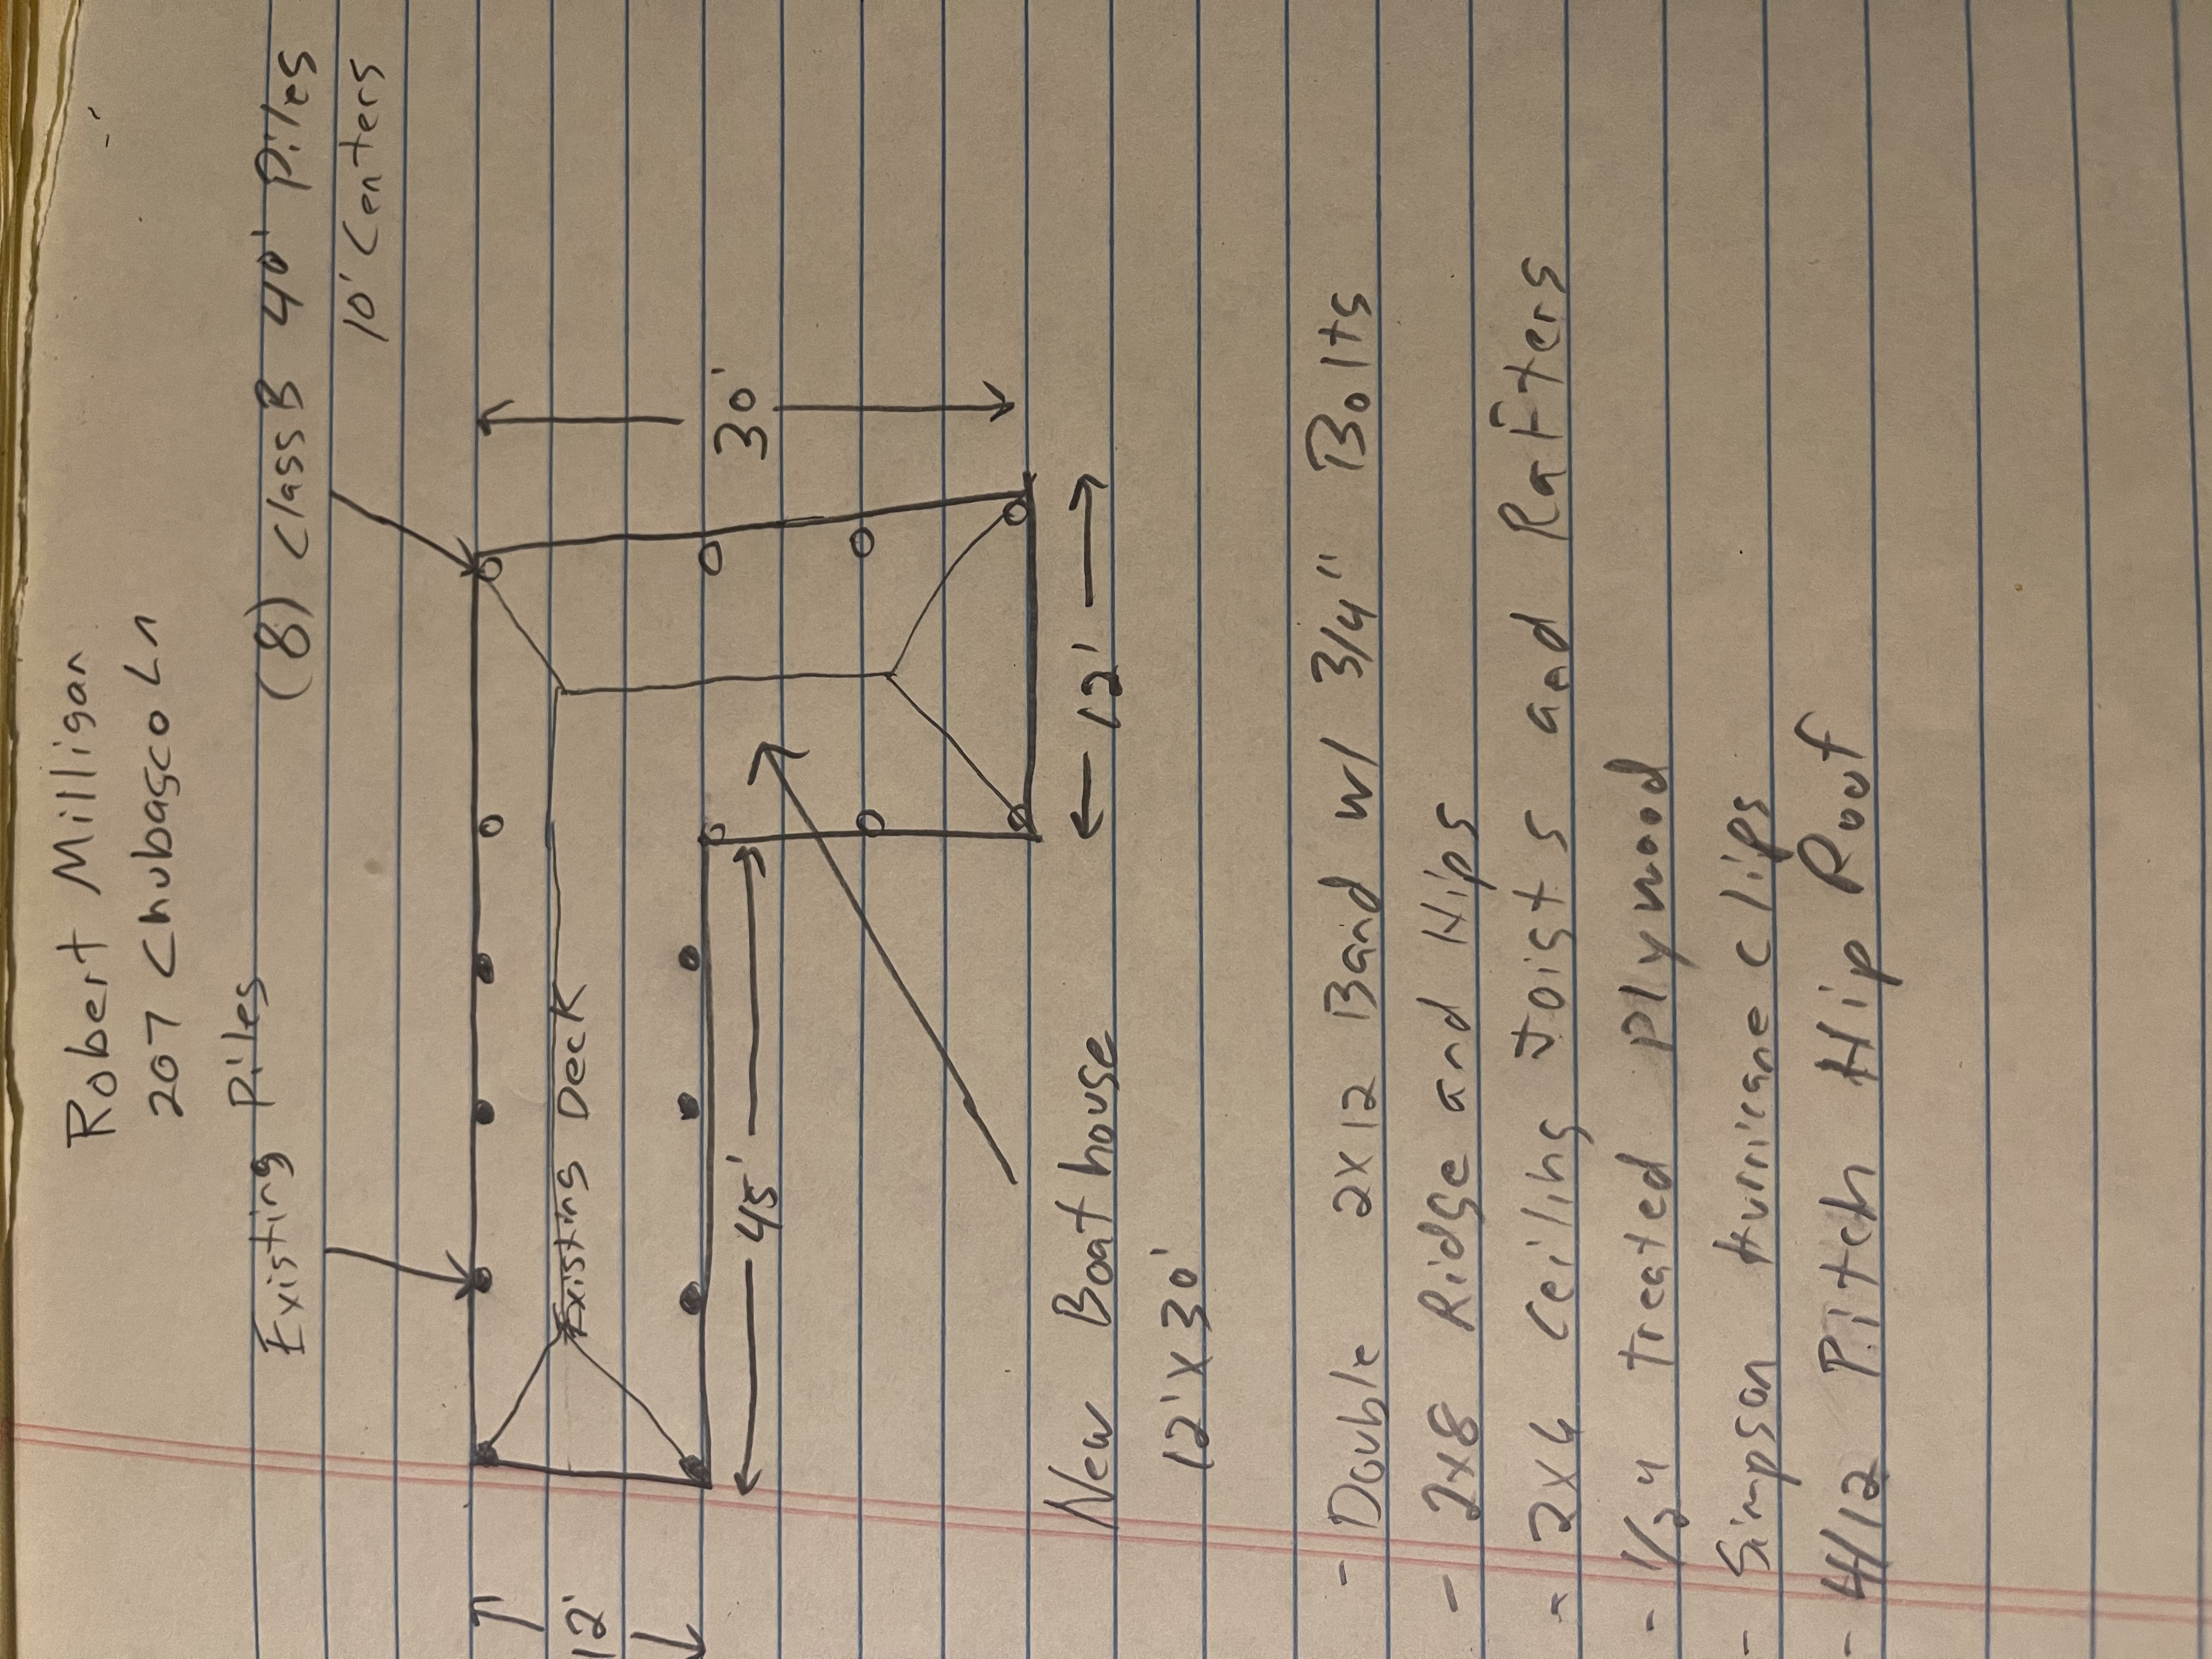 Robert Milligan
207 Chubasco Ln
Existing Piles
(8) Class B 40' Piles
10' Centers
12'
Existing Deck
45'
30'
12'
New Boathouse
12'x30'
- Double 2x12 Band w/ 3/4" Bolts
- 2x8 Ridge and Hips
- 2x6 Ceiling Joists and Rafters
- 1/2" treated plywood
- Simpson hurricane clips
- 4/12 Pitch Hip Roof